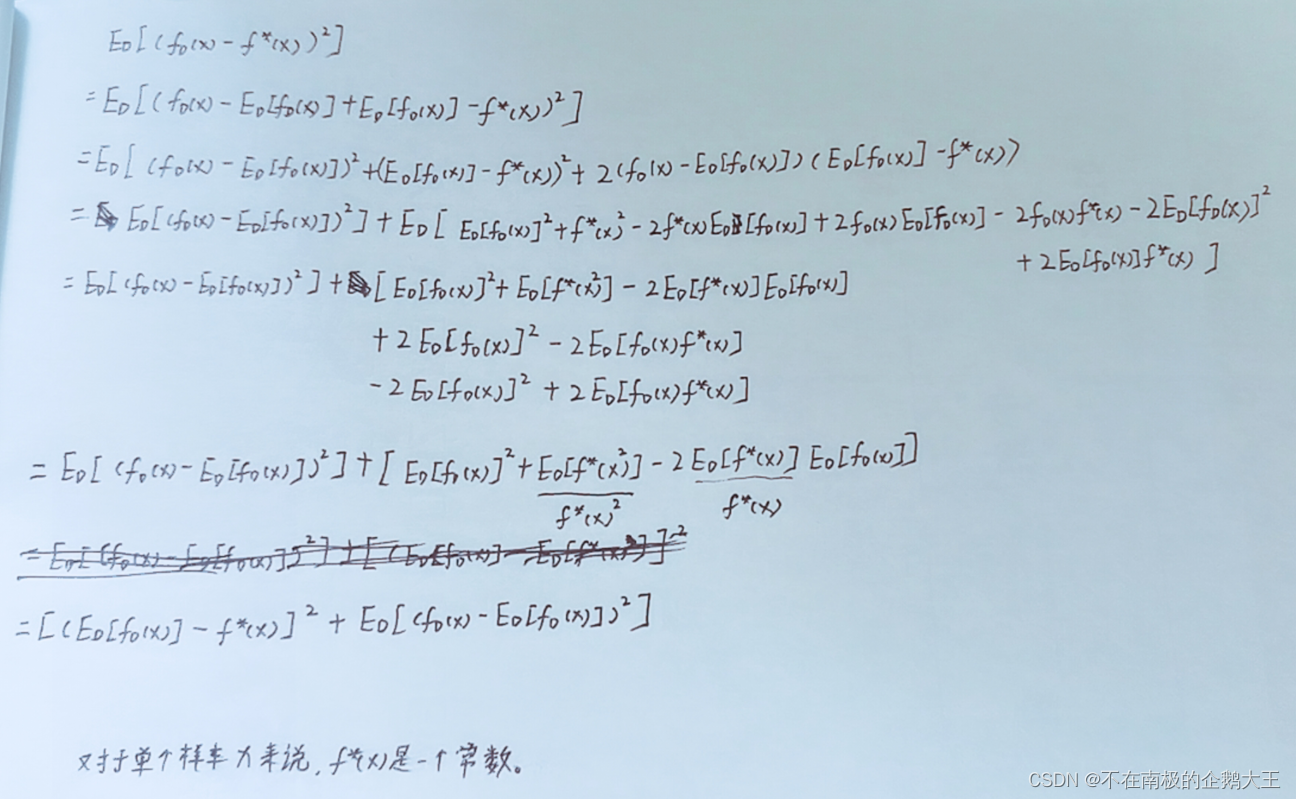 E_D[(f_D(x) - f*(x))²]
= E_D[(f_D(x) - E_D[f_D(x)] + E_D[f_D(x)] - f*(x))²]
= E_D[ (f_D(x) - E_D[f_D(x)])² + (E_D[f_D(x)] - f*(x))² + 2(f_D(x) - E_D[f_D(x)]) (E_D[f_D(x)] - f*(x))
= E_D[(f_D(x) - E_D[f_D(x)])²] + E_D[ E_D[f_D(x)]² + f*(x)² - 2f*(x)E_D[f_D(x)] + 2f_D(x)E_D[f_D(x)] - 2f_D(x)f*(x) - 2E_D[f_D(x)]²
+ 2E_D[f_D(x)]f*(x) ]
= E_D[(f_D(x) - E_D[f_D(x)])²] + [ E_D[f_D(x)]² + E_D[f*(x)²] - 2E_D[f*(x)]E_D[f_D(x)]
+ 2E_D[f_D(x)]² - 2E_D[f_D(x)f*(x)]
- 2E_D[f_D(x)]² + 2E_D[f_D(x)f*(x)]
= E_D[(f_D(x) - E_D[f_D(x)])²] + [ E_D[f_D(x)]² + E_D[f*(x)²] - 2E_D[f*(x)] E_D[f_D(x)]]
f*(x)² f*(x)
= [(E_D[f_D(x)] - f*(x)]² + E_D[(f_D(x) - E_D[f_D(x)])²]
对于单个样本x来说,f*(x)是一个常数。
CSDN @不在南极的企鹅大王